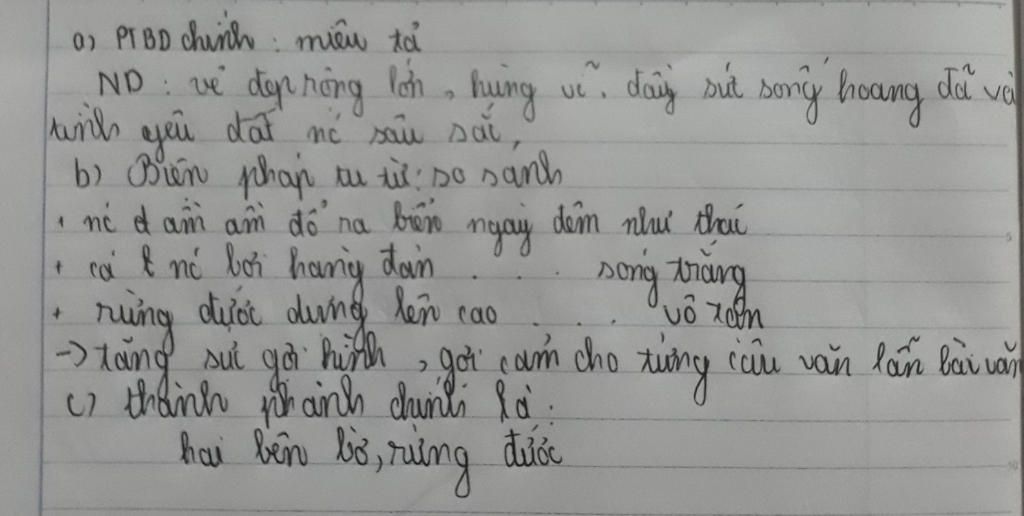 a) PTBD chính : miêu tả
ND : vẻ đẹp rộng lớn, hùng vĩ, đầy sức sống hoang dã và
tình yêu đất nc sâu sắc,
b) Biện pháp tu từ : so sánh
+ nc ầm ầm đổ ra biển ngày đêm như thác
+ cá nc bơi hàng đàn . . . sóng trắng
+ rừng đước dựng lên cao . . . vô tận
-> tăng sức gợi hình, gợi cảm cho từng câu văn lẫn bài văn
c) thành phành chính là :
hai bên bờ, rừng đước